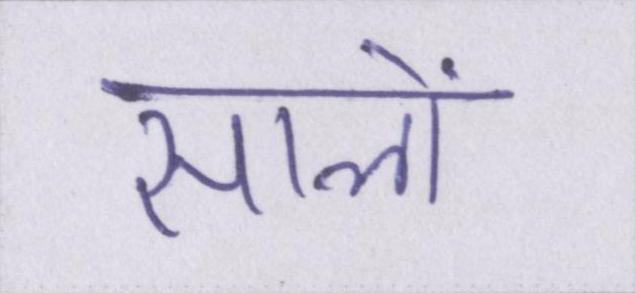 सालों